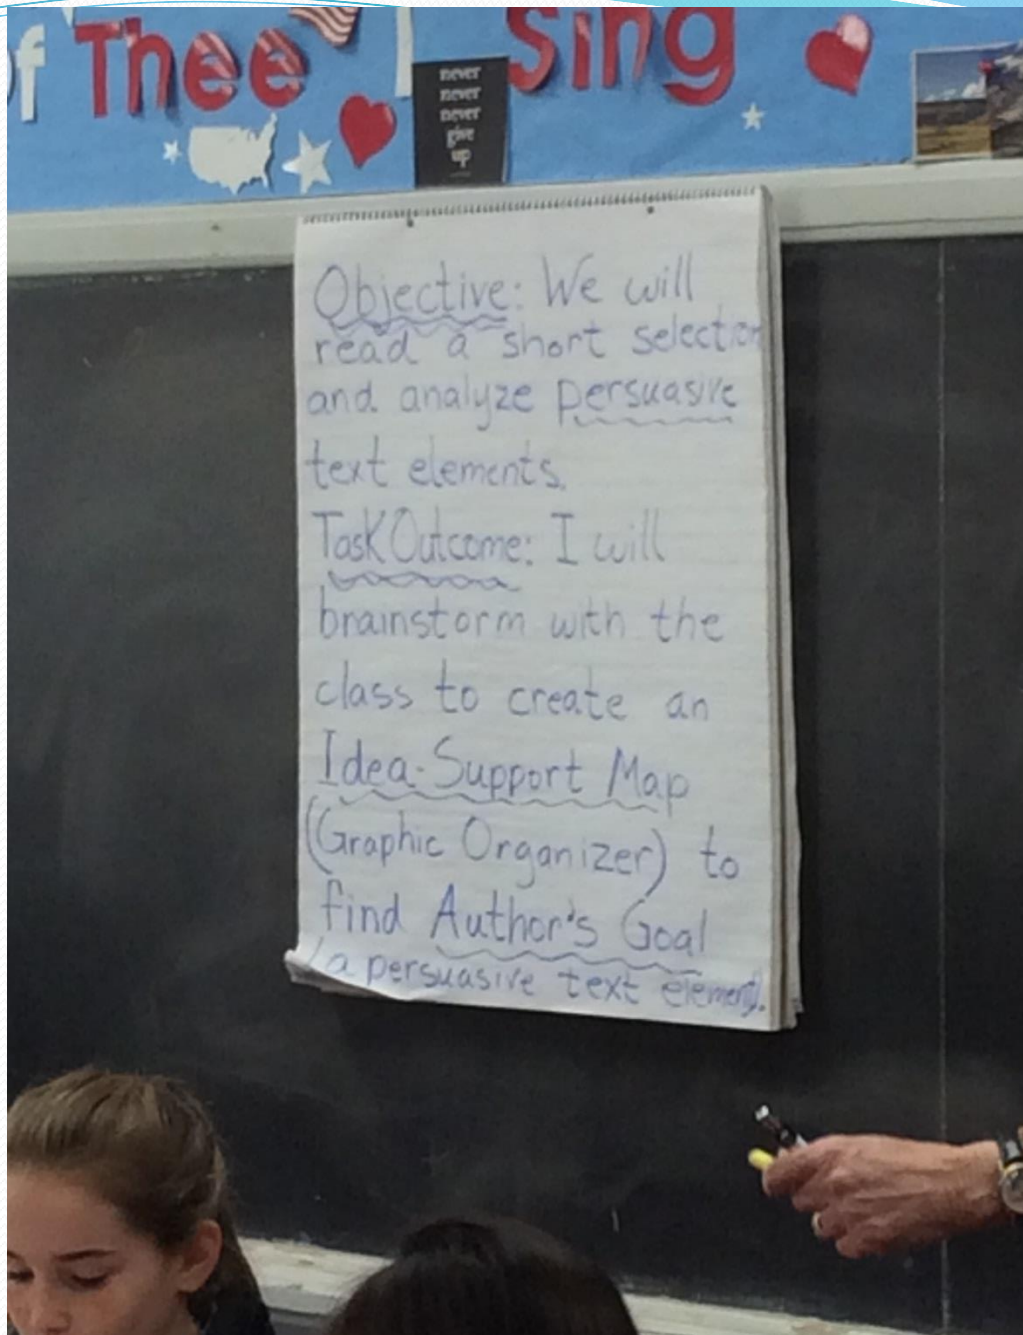 of Thee I Sing
never
never
never
give
up
Objective: We will
read a short selection
and analyze persuasive
text elements.
Task Outcome: I will
brainstorm with the
class to create an
Idea-Support Map
(Graphic Organizer) to
find Author's Goal
(a persuasive text element).